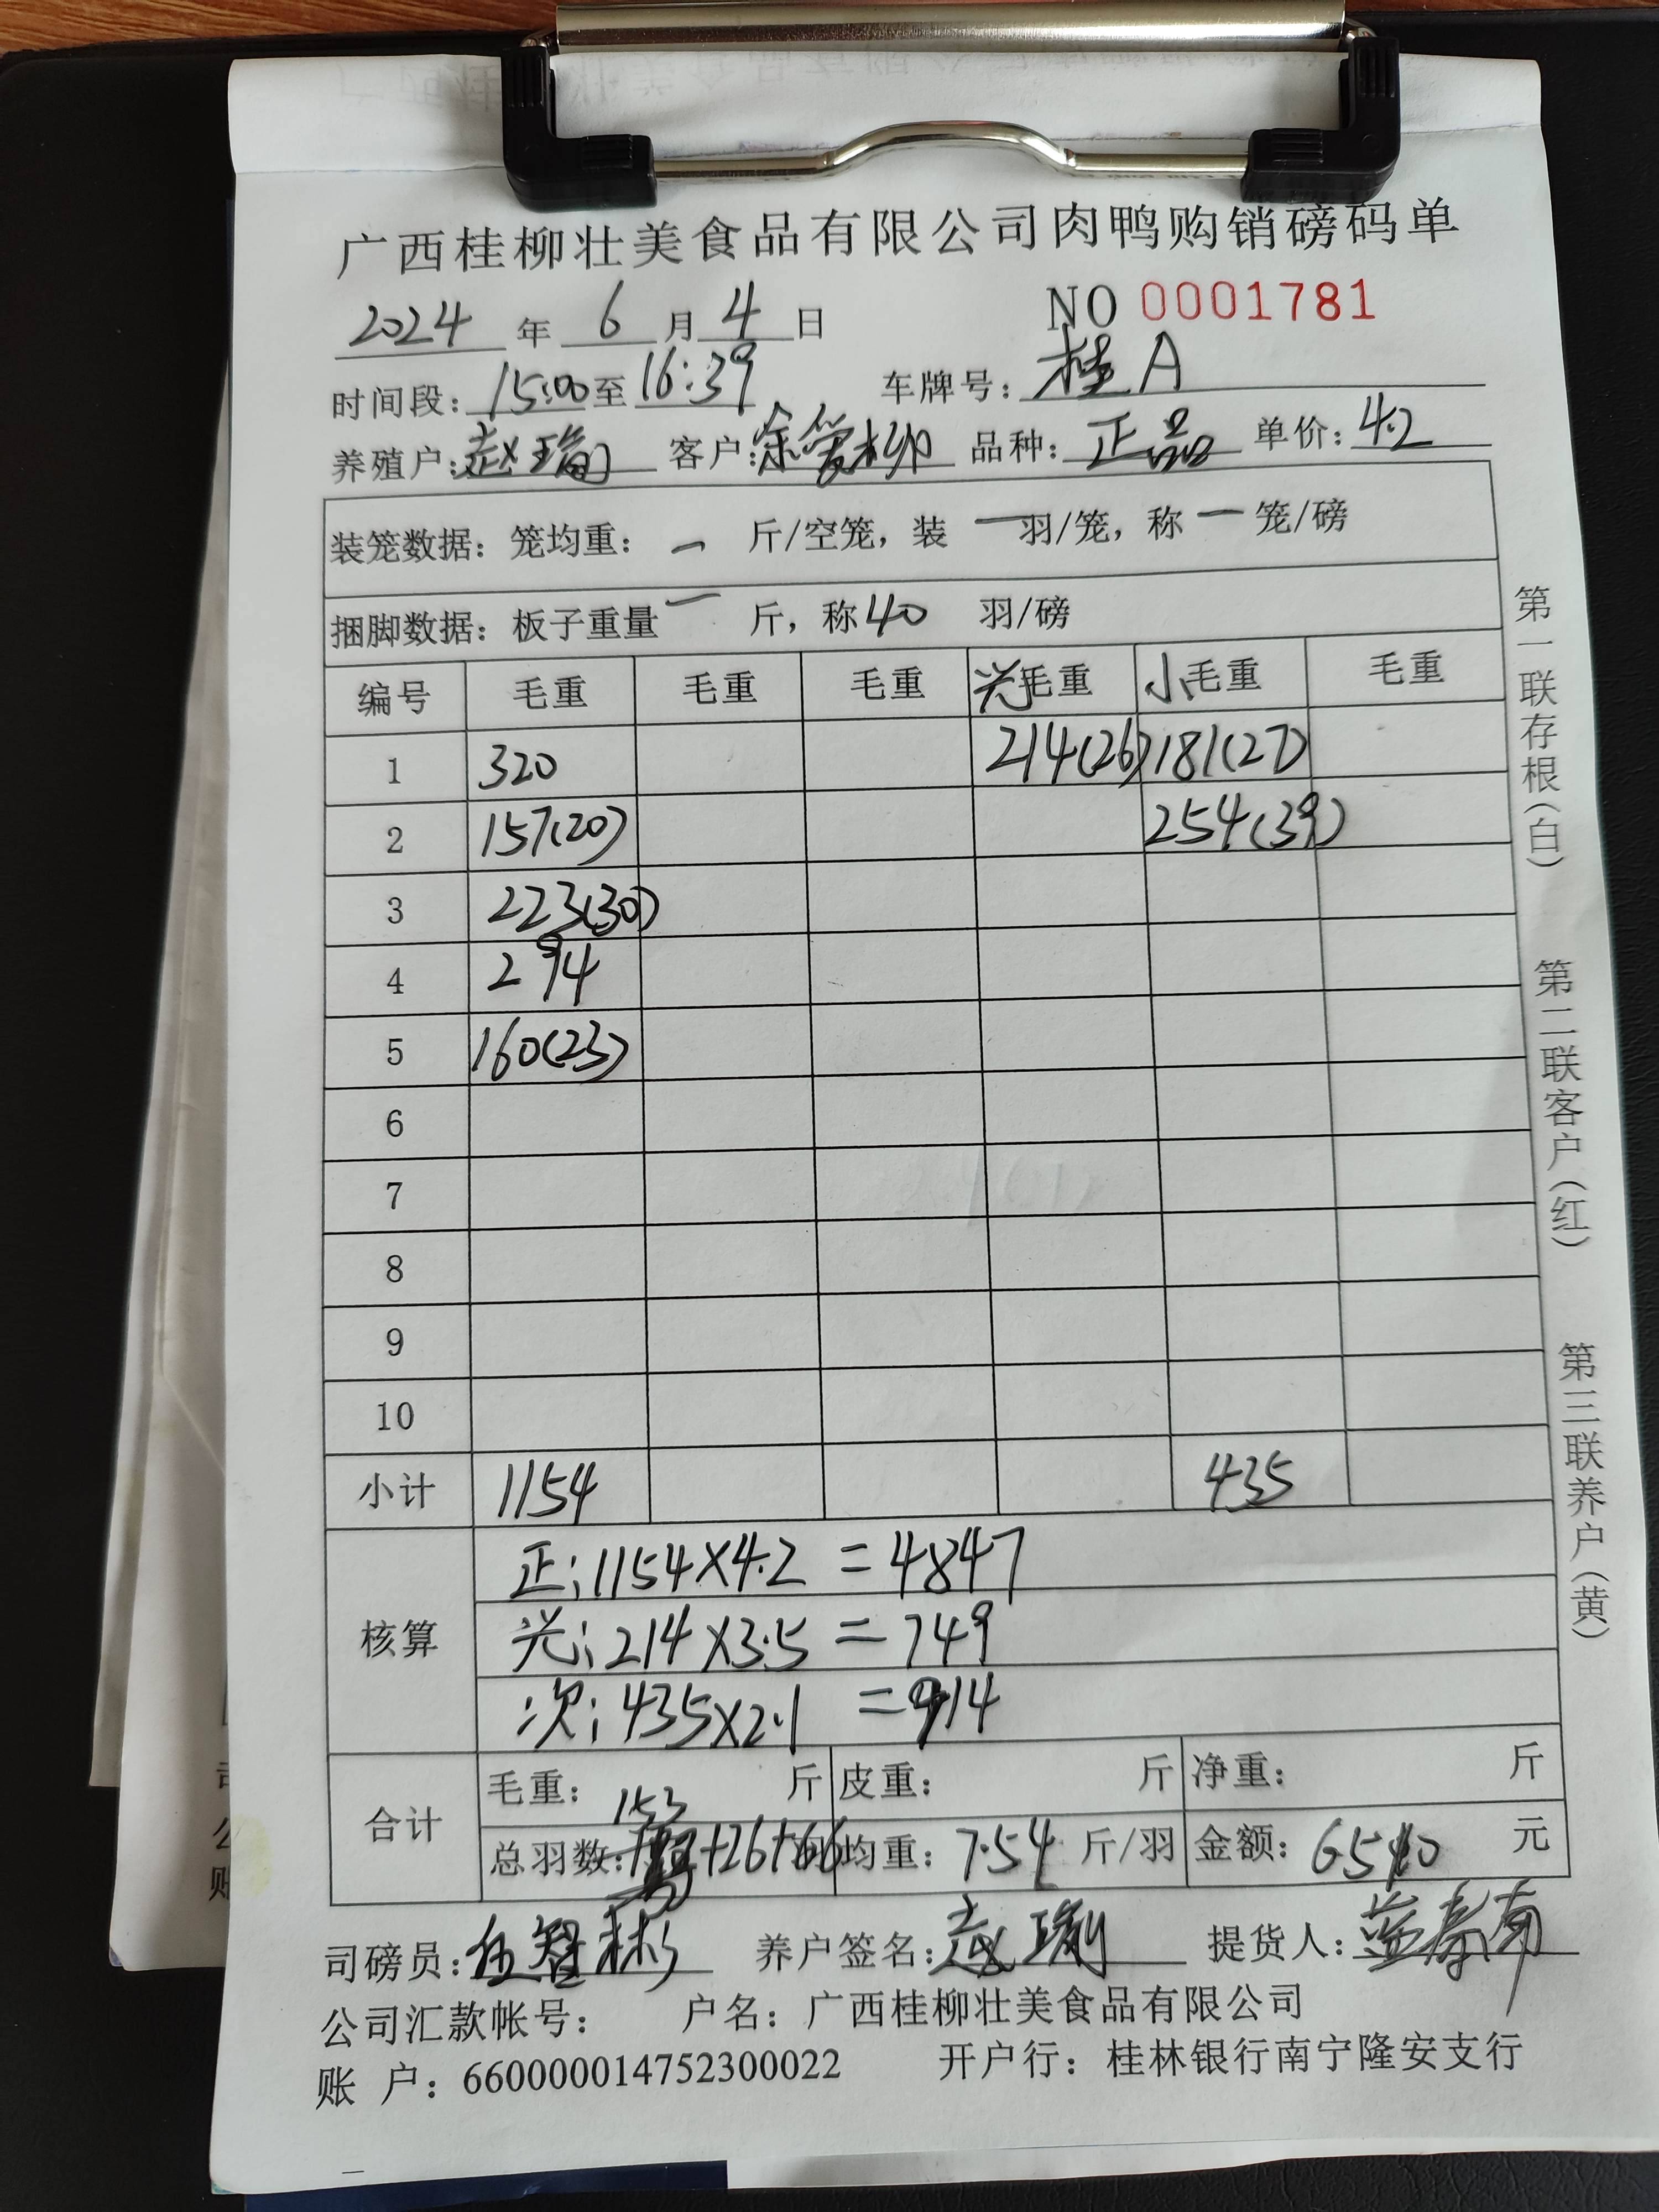 广西桂柳壮美食品有限公司肉鸭购销磅码单
2024 年 6 月 4 日 NO 0001781
时间段: 15:00 至 16:39 车牌号: 桂A
养殖户: 赵瑜 客户: 余爱柳 品种: 正品 单价: 4.2
装笼数据: 笼均重: 一 斤/空笼, 装 一 羽/笼, 称 一 笼/磅
捆脚数据: 板子重量 一 斤, 称 40 羽/磅
编号 毛重 毛重 毛重 光毛重 小毛重 毛重
1 320 214(26) 181(27)
2 157(20) 254(39)
3 223(30)
4 294
5 160(23)
6
7
8
9
10
小计 1154 435
核算
正: 1154×4.2 = 4847
光: 214×3.5 = 749
次: 435×2.1 = 914
合计
毛重: 斤 皮重: 斤 净重: 斤
总羽数: 153+26+66 均重: 7.54 斤/羽 金额: 6510 元
司磅员: 伍智彬 养户签名: 赵瑜 提货人: 蓝寿南
公司汇款帐号: 户名: 广西桂柳壮美食品有限公司
账 户: 660000014752300022 开户行: 桂林银行南宁隆安支行
第一联存根(白) 第二联客户(红) 第三联养户(黄)